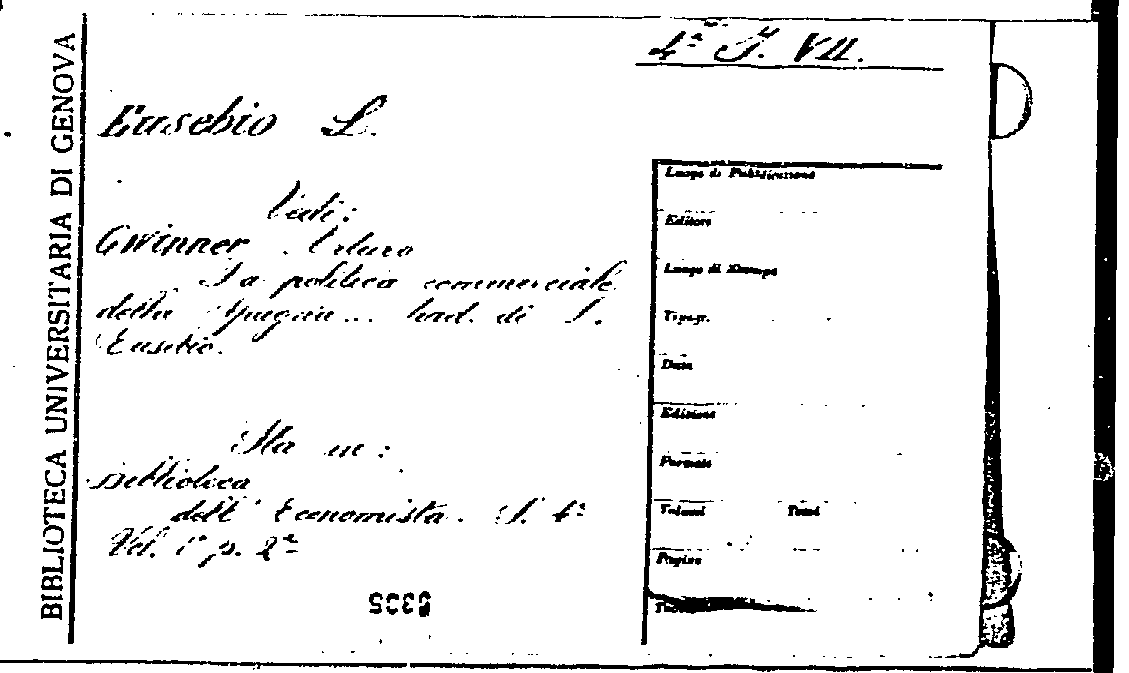 BIBLIOTECA UNIVERSITARIA DI GENOVA
4ª J. VII.
Eusebio L.
Vedi:
Gwinner Arturo
La politica commerciale
della Spagna... trad. di L.
Eusebio.
Sta in:
Biblioteca
dell'Economista. S. 4ª
Vol. 1º p. 2ª
Luogo di Pubblicazione
Editore
Luogo di Stampa
Tipogr.
Data
Edizione
Formato
Volumi Tomi
Pagine